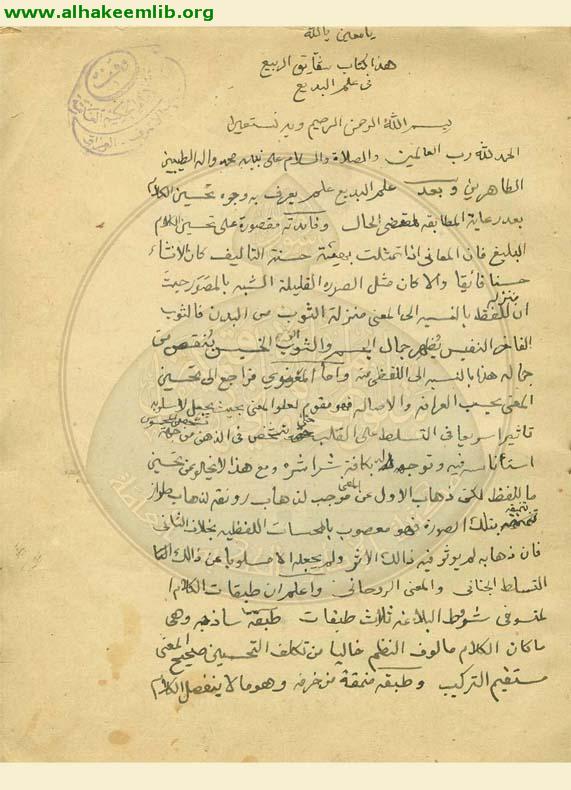 www.alhakeemlib.org
يا معين يا الله
هذا الكتاب شقايق الربيع
في علم البديع
بسم الله الرحمن الرحيم وبه نستعين
الحمد لله رب العالمين والصلاة والسلام على نبينه محمد واله الطيبين
الطاهرين وبعد علم البديع علم يعرف به وجوه تحسين الكلام
بعد رعاية المطابقه لمقتضى الحال وفائدته مقصورة على تحسين الكلام
البليغ فان المعاني اذا تمثلت بهيئة حسنة التاليف كان الانشاء
حسنا فائقا والا كان مثل الصوره القليلة الشبه بالمصور حيث
ان للفظ بالنسبه الى المعنى منزلة الثوب من البدن فالثوب
الفاخر النفيس يظهر جمال الجسم والثوب الخسيس ينقص من
جماله هذا بالنسبه الى اللفظي منه واما المعنوي فراجع الى تحسين
المعنى بحسب العراقه والاصاله فهو مقوم لعلو المعنى بحيث يجعل لاسلوبه
تاثيرا سريعا في التسلط على القلب حتى يشخص في الذهن من جهة
استأناسه فيه وتوجهه اليه بكافة شراشره ومع هذا لا يخلو عن تحسين
ما للفظ لكن ذهاب الاول عن المعنى موجب لذهاب رونقه لذهاب طراز
تنميقه بتلك الصورة فهو معصوب بالمحسنات اللفظيه بخلاف الثاني
فان ذهابه لم يوثر فيه ذالك الاثر ولم يجعله الا مسلوبا عن ذالك
التسلط الجناني والمعنى الروحاني واعلم ان طبقات الكلام
لمتوفي شروط البلاغه ثلاث طبقات طبقه ساذجه وهي
ما كان الكلام مالوف النظم خاليا من تكلف التحسين صحيح المعنى
مستقيم التركيب وطبقه منمقة مزخرفه وهو ما لا ينفصل الكلام